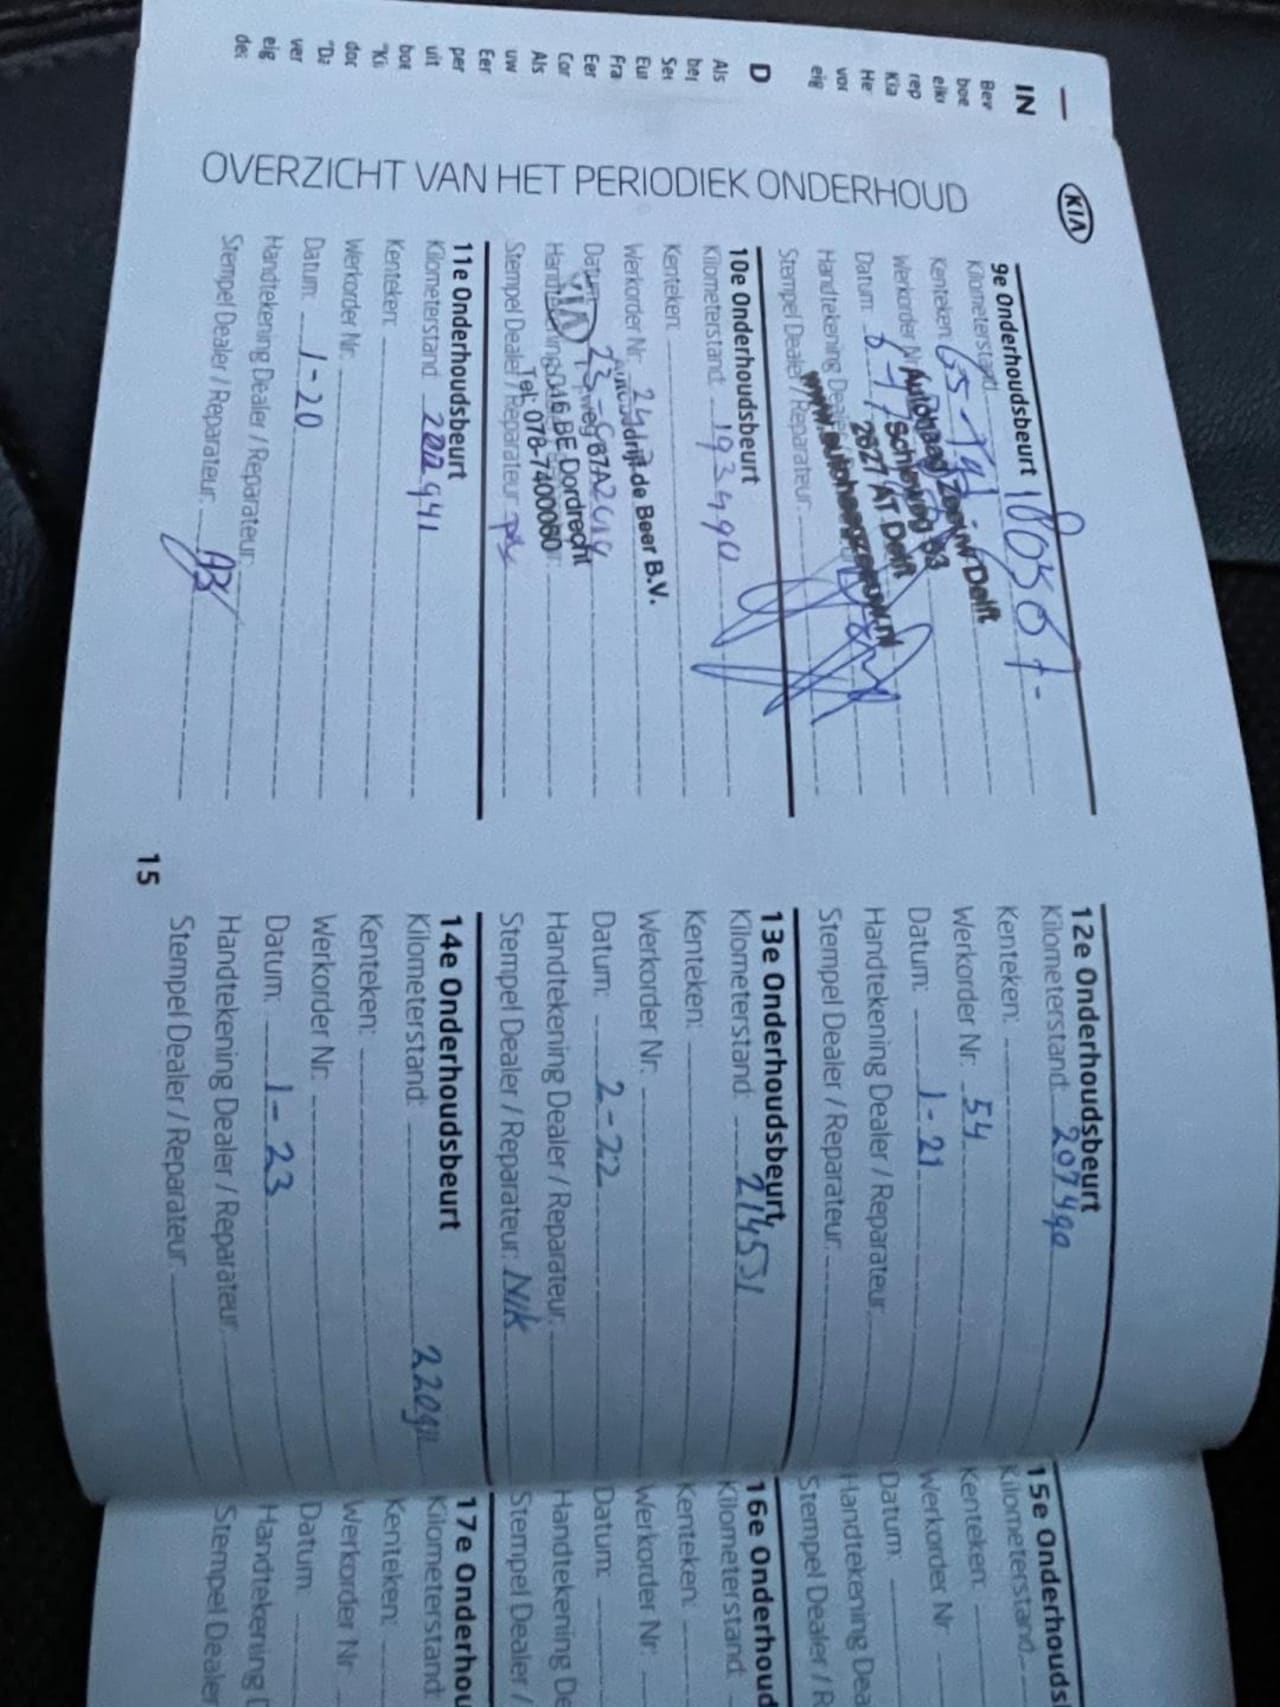 IN
Bev
boe
rep
Kia
He
vor
eig
D
Als
ber
Ser
Eur
Fra
Eer
Cor
Als
uw
Eer
per
uit
bor
"Ki
doc
"Da
ver
eig
dec
KIA
OVERZICHT VAN HET PERIODIEK ONDERHOUD
9e Onderhoudsbeurt
Kilometerstand:
Kenteken:
Werkorder Nr.
Datum:
Handtekening Dealer / Reparateur:
Stempel Dealer / Reparateur:
Delft
Schieweg 63
2627 AT Delft
10e Onderhoudsbeurt
Kilometerstand: 193490
Kenteken:
Werkorder Nr.
Datum:
Handtekening
Stempel Dealer / Reparateur:
de Beer B.V.
KIA
BE Dordrecht
Tel: 078-7400080
11e Onderhoudsbeurt
Kilometerstand:
Kenteken:
Werkorder Nr.
Datum: 1-20
Handtekening Dealer / Reparateur:
Stempel Dealer / Reparateur:
12e Onderhoudsbeurt
Kilometerstand:
Kenteken:
Werkorder Nr: 54
Datum: 1-21
Handtekening Dealer / Reparateur:
Stempel Dealer / Reparateur:
13e Onderhoudsbeurt
Kilometerstand: 214531
Kenteken:
Werkorder Nr.
Datum: 2-22
Handtekening Dealer / Reparateur:
Stempel Dealer / Reparateur: Nik
14e Onderhoudsbeurt
Kilometerstand:
Kenteken:
Werkorder Nr:
Datum: 1-23
Handtekening Dealer / Reparateur:
Stempel Dealer / Reparateur:
15
15e Onderhouds
Kilometerstand:
Kenteken:
Werkorder Nr
Datum:
Handtekening Dea
Stempel Dealer / R
16e Onderhoud
Kilometerstand:
Kenteken:
Werkorder Nr:
Datum:
Handtekening De
Stempel Dealer /
17e Onderhou
Kilometerstand
Kenteken:
Werkorder Nr
Datum:
Handtekening D
Stempel Dealer